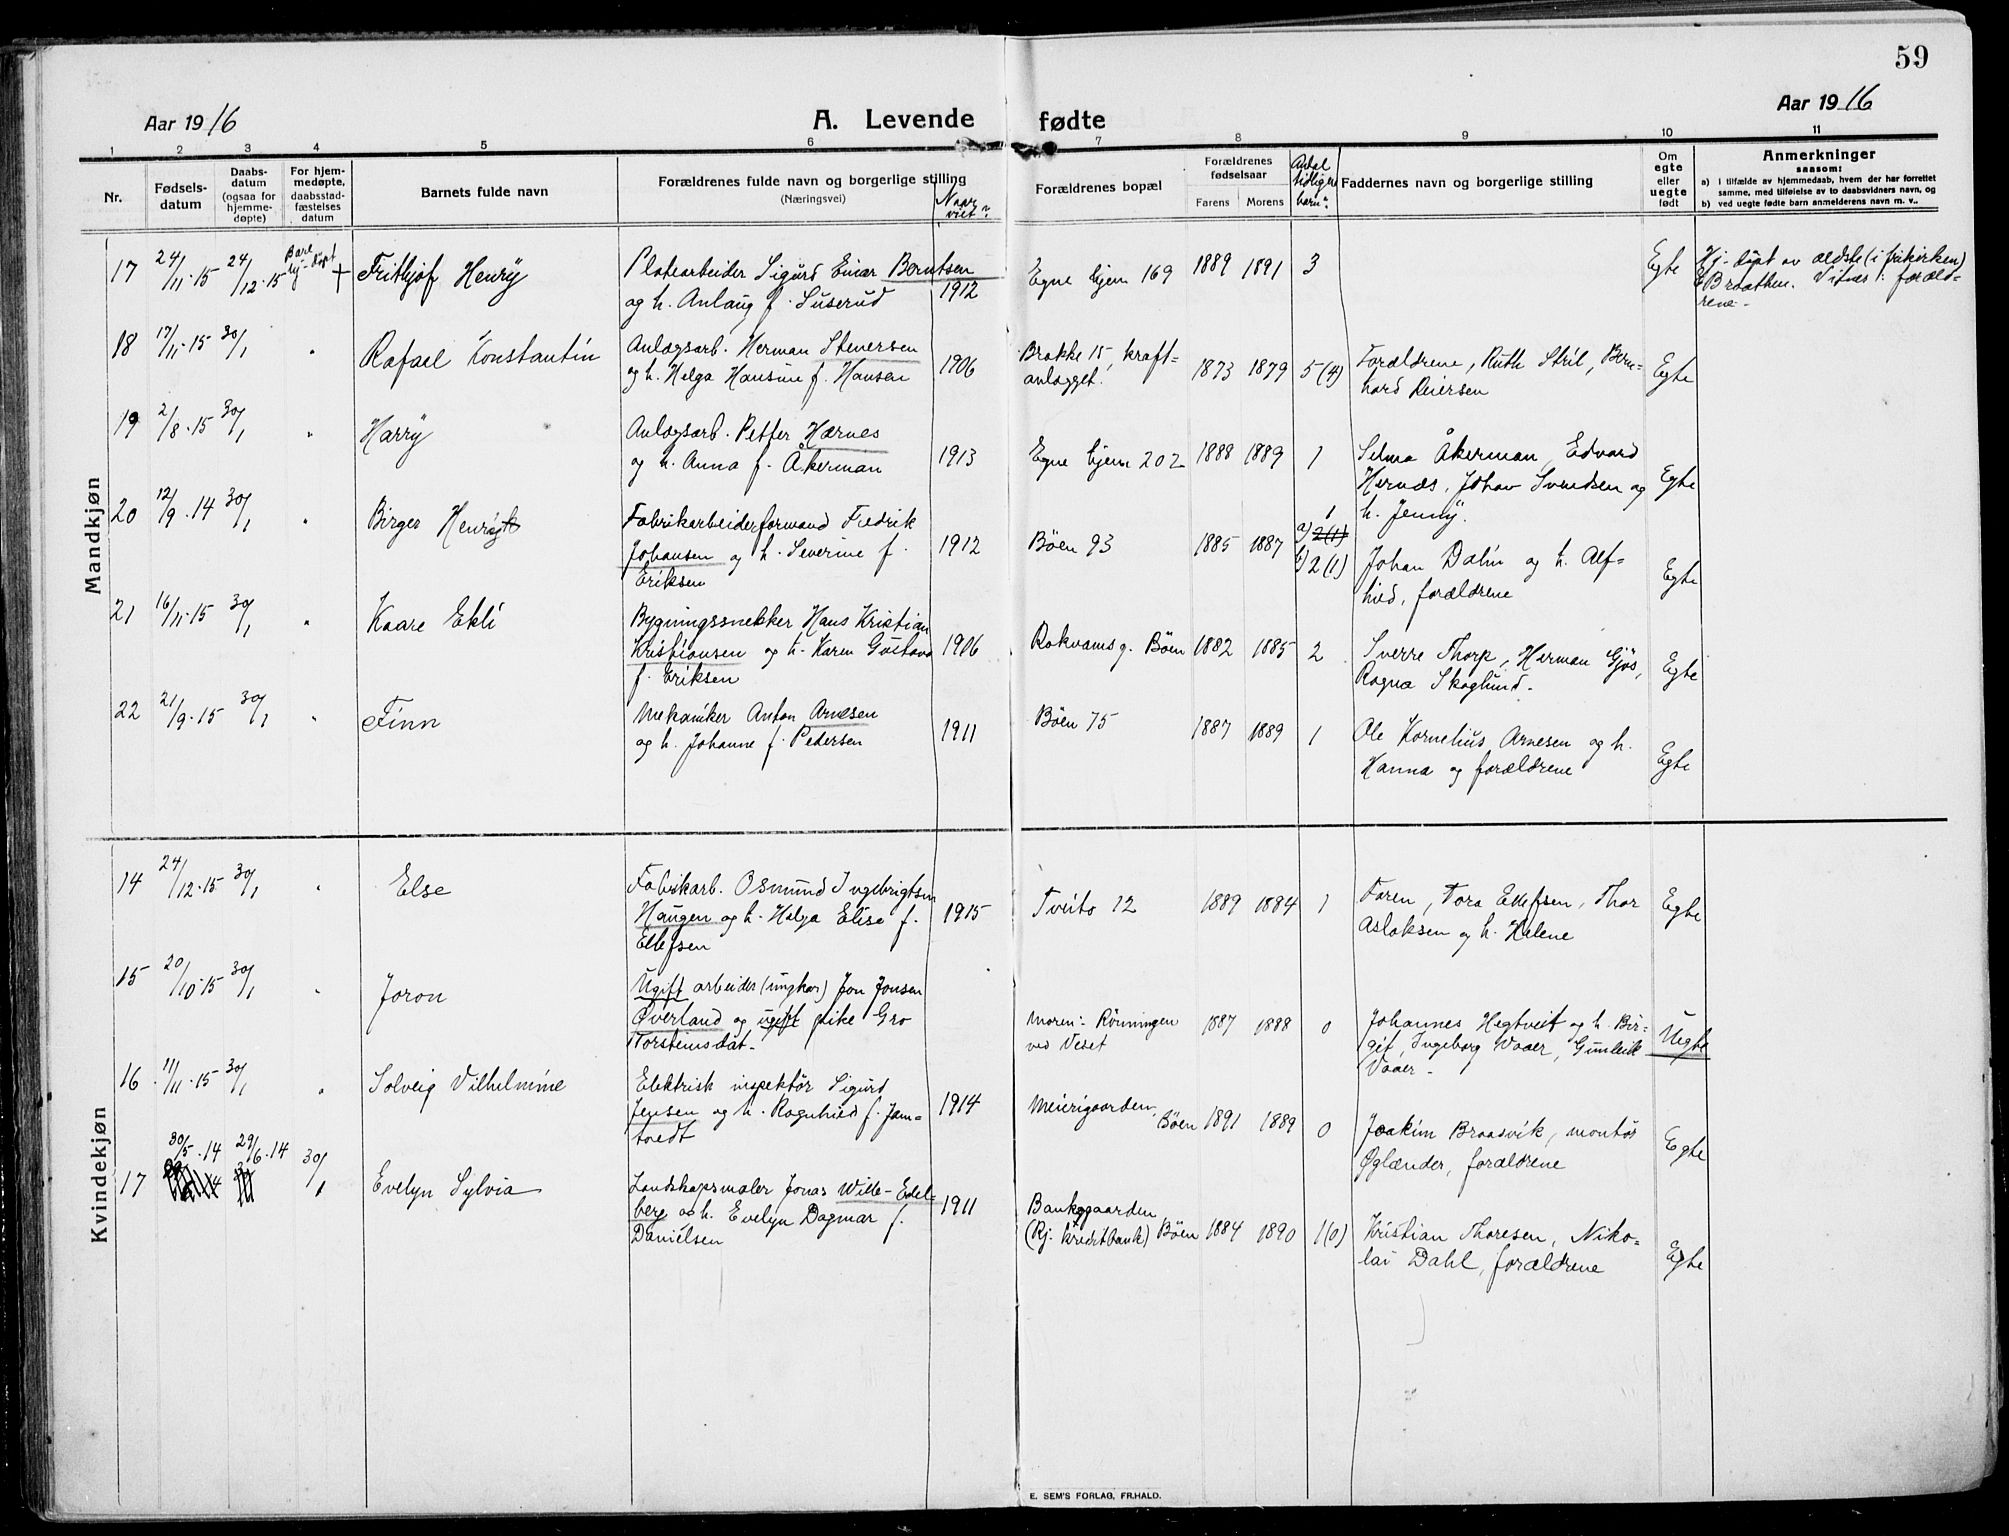 59
Aar 1916
A. Levende fødte
Aar 1916
1 2 3 4 5 6 7 8 9 10 11
Nr.
Fødsels-
datum
Daabs-
datum
(ogsaa for
hjemme-
døpte)
For hjem-
medøpte,
daabsstad-
fæstelses
datum
Barnets fulde navn
Forældrenes fulde navn og borgerlige stilling
(Næringsvei)
Naar
viet?
Forældrenes bopæl
Forældrenes
fødselsaar
Farens Morens
Antal
tidligere
barn?
Faddernes navn og borgerlige stilling
Om
egte
eller
uegte
født
Anmerkninger
saasom:
a) I tilfælde av hjemmedaab, hvem der har forrettet
samme, med tilføielse av to daabsvidners navn, og
b) ved uegte fødte barn anmelderens navn m. v..
Mandkjøn
17 24/11-15 24/12-15 Bare hj-døpt + Frithjof Henry
Platearbeider Sigurd Einar Berntsen
og h. Anlaug f. Suserud
1912
Egne hjem 169 1889 1891 3
Egte
Hj-døpt av ældste (i frikirken)
E Braathen. Vitner: foræld-
rene-
18 17/11-15 30/1 " Rafael Konstantin
Anlægsarb. Herman Stenersen
og h. Helga Hansine f. Hansen
1906
Brakke 15, kraft-
anlægget. 1873 1879 5(4)
Forældrene, Ruth Stril, Bern-
hard Reiersen
Egte
19 2/8-15 30/1 " Harry
Anlægsarb. Petter Hærnes
og h. Anna f. Åkerman
1913
Egne hjem 202 1888 1889 1
Selma Åkerman, Edvard
Hernæs, Johan Svendsen og
h. Jenny.
Egte
20 12/9-14 30/1 " Birger Henrik
Fabrikarbeiderformand Fredrik
Johansen og h. Severine f.
Eriksen
1912
Bøen 93 1885 1887
1
a) 2(1)
b) 2(1)
Johan Dalin og h. Alf-
hild, forældrene
Egte
21 16/11-15 30/1 " Kaare Ekli
Bygningssnekker Hans Kristian
Kristiansen og h. Karen Gustava
f. Eriksen
1906
Rokvamsg. Bøen 1882 1885 2
Sverre Thorp, Herman Gjøs,
Ragna Skoglund.
Egte
22 21/9-15 30/1 " Finn
Mekaniker Anton Arnesen
og h. Johanne f. Pedersen
1911
Bøen 75 1887 1889 1
Ole Kornelius Arnesen og h.
Hanna og forældrene
Egte
Kvindekjøn
14 24/12-15 30/1 " Else
Fabrikarb. Osmund Ingebrigtsen
Haugen og h. Helga Elise f.
Ellefsen
1915
Tveito 12 1889 1884 1
Faren, Tora Ellefsen, Thor
Aslaksen og h. Helene
Egte
15 20/10-15 30/1 " Joron
Ugift arbeider (ungkar) Jon Jonsen
Øverland og ugift pike Gro
Torsteinsdat-
Moren: Rönningen
ved Veset 1887 1888 0
Johannes Hegtveit og h. Bir-
git, Ingeborg Vaaer, Gunleik
Vaaer-
Uegte
16 11/11-15 30/1 " Solveig Vilhelmine
Elektrisk inspektör Sigurd
Jensen og h. Ragnhild f. Jam-
toedt
1914
Meierigaarden,
Bøen 1891 1889 0
Joakim Braasvik, montör
Øglænder, forældrene
Egte
17 30/5-14 29/6-14 30/1 Evelyn Sylvia
Landskapsmaler Jonas Wille-Edel-
berg og h. Evelyn Dagmar f.
Danielsen
1911
Bankgaarden
(Rj. kreditbank) Bøen 1884 1890 1(0)
Kristian Thoresen, Niko-
lai Dahl, forældrene
Egte
E. SEM'S FORLAG, FR.HALD.